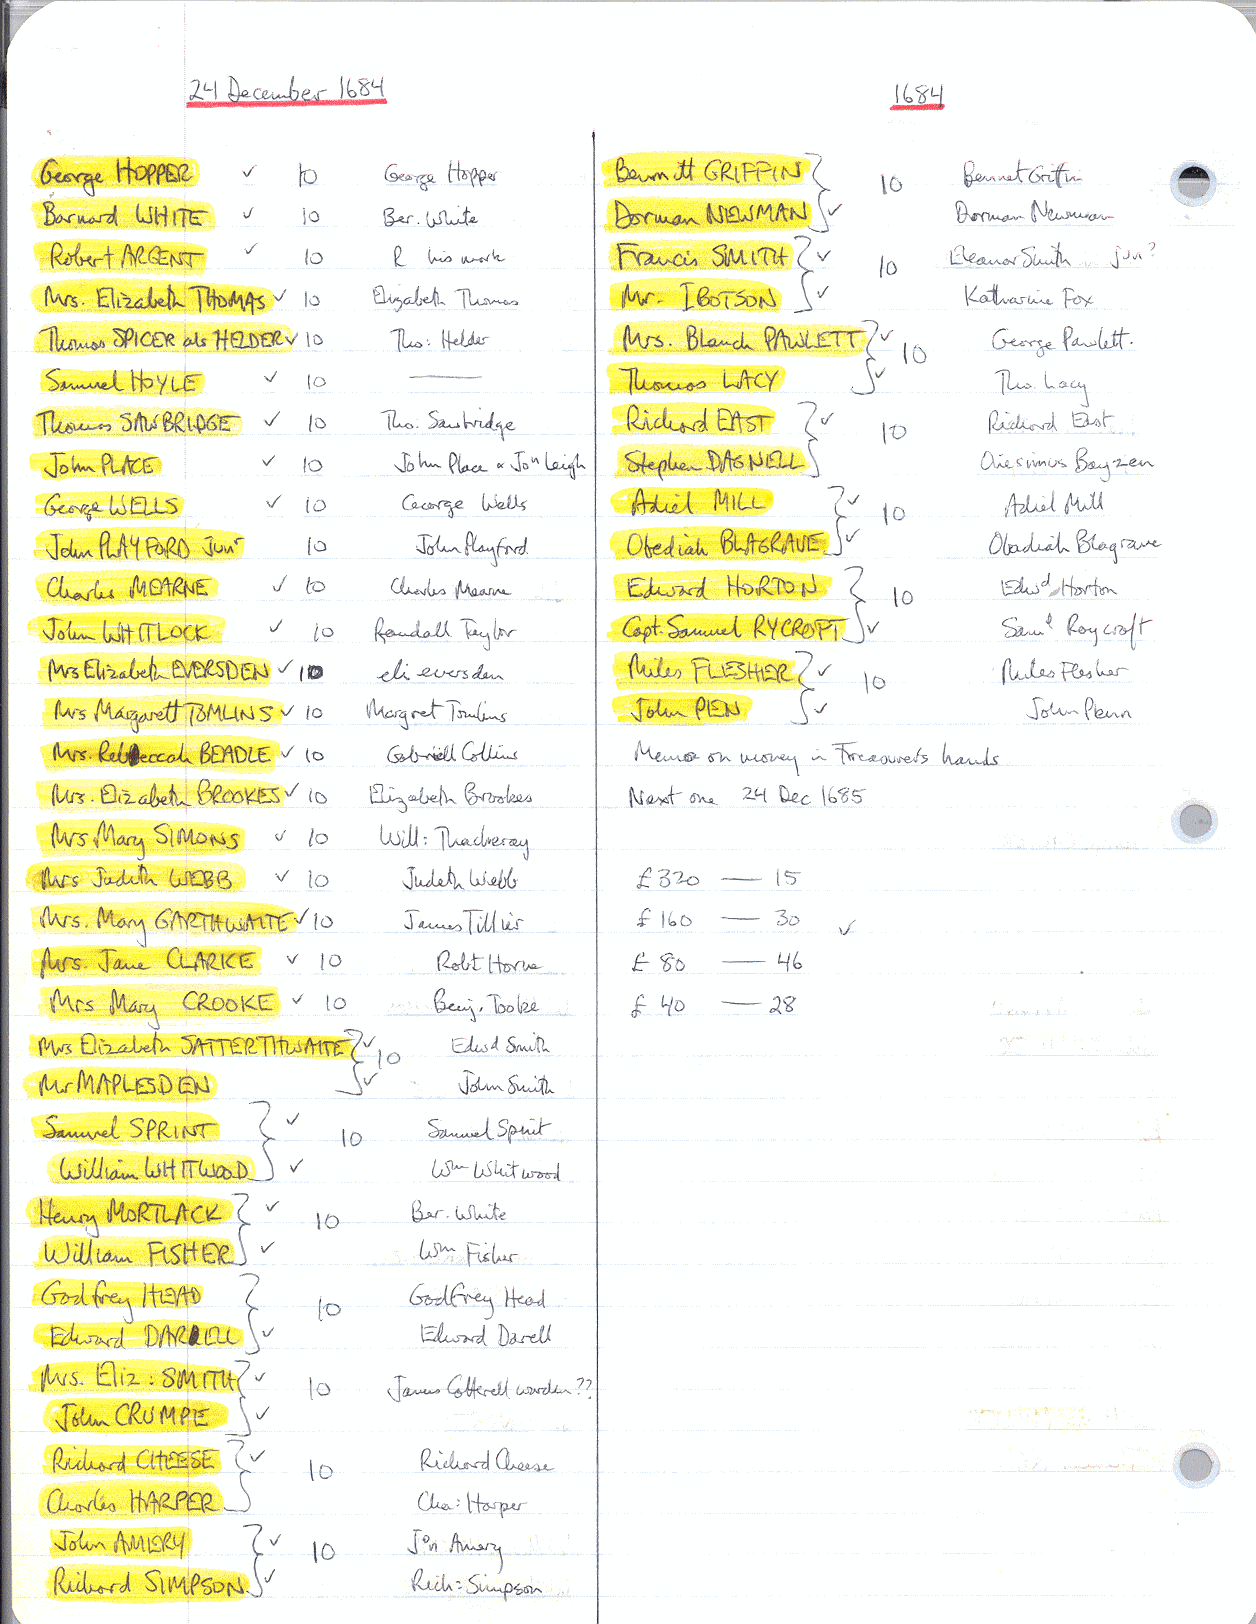 24 December 1684
George HOPPER ✓ 10 George Hopper
Barnard WHITE ✓ 10 Ber. White
Robert ARGENT ✓ 10 R his mark
Mrs. Elizabeth THOMAS ✓ 10 Elizabeth Thomas
Thomas SPICER als HELDER ✓ 10 Tho: Helder
Samuel HOYLE ✓ 10 —
Thomas SAWBRIDGE ✓ 10 Tho. Sawbridge
John PLACE ✓ 10 John Place & Jon Leigh
George WELLS ✓ 10 George Wells
John PLAYFORD Junr 10 John Playford
Charles MEARNE ✓ 10 Charles Mearne
John WHITLOCK ✓ 10 Randall Taylor
Mrs Elizabeth EVERSDEN ✓ 10 eli eversden
Mrs Margarett TOMLINS ✓ 10 Margret Tomlins
Mrs. Rebeccah BEADLE ✓ 10 Gabriell Collins
Mrs. Elizabeth BROOKES ✓ 10 Elizabeth Brookes
Mrs Mary SIMONS ✓ 10 Will: Thackeray
Mrs Judith WEBB ✓ 10 Judeth Webb
Mrs. Mary GARTHWAITE ✓ 10 James Tillier
Mrs. Jane CLARKE ✓ 10 Robt Horne
Mrs Mary CROOKE ✓ 10 Benj. Tooke
Mrs Elizabeth SATTERTHWAITE ✓ 10 Edwd Smith
Mr MAPLESDEN ✓ John Smith
Samuel SPRINT ✓ 10 Samuel Sprint
William WHITWOOD ✓ Wm Whitwood
Henry MORTLACK ✓ 10 Ber. White
William FISHER ✓ Wm Fisher
Godfrey HEAD 10 Godfrey Head
Edward DARRELL ✓ Edward Darell
Mrs. Eliz: SMITH ✓ 10 James Cotterell warden??
John CRUMPE ✓
Richard CHEESE ✓ 10 Richard Cheese
Charles HARPER Cha: Harper
John AMERY ✓ 10 Jon Amery
Richard SIMPSON ✓ Rich: Simpson
1684
Bennett GRIFFIN 10 Bennet Griffin
Dorman NEWMAN ✓ Dorman Newman
Francis SMITH ✓ 10 Eleanor Smith jun?
Mr. IBOTSON ✓ Katharine Fox
Mrs. Blanch PAWLETT ✓ 10 George Pawlett.
Thomas LACY ✓ Tho. Lacy
Richard EAST ✓ 10 Richard East
Stephen DAGNELL Onesimus Bayzen
Adiel MILL ✓ 10 Adiel Mill
Obediah BLAGRAVE ✓ Obadiah Blagrave
Edward HORTON 10 Edwd Horton
Capt. Samuel RYCROFT ✓ Saml Roycroft
Miles FLESHER ✓ 10 Miles Flesher
John PEN ✓ John Penn
Memo on money in Treasurer's hands
Next one 24 Dec 1685
£320 — 15
£160 — 30 ✓
£80 — 46
£40 — 28